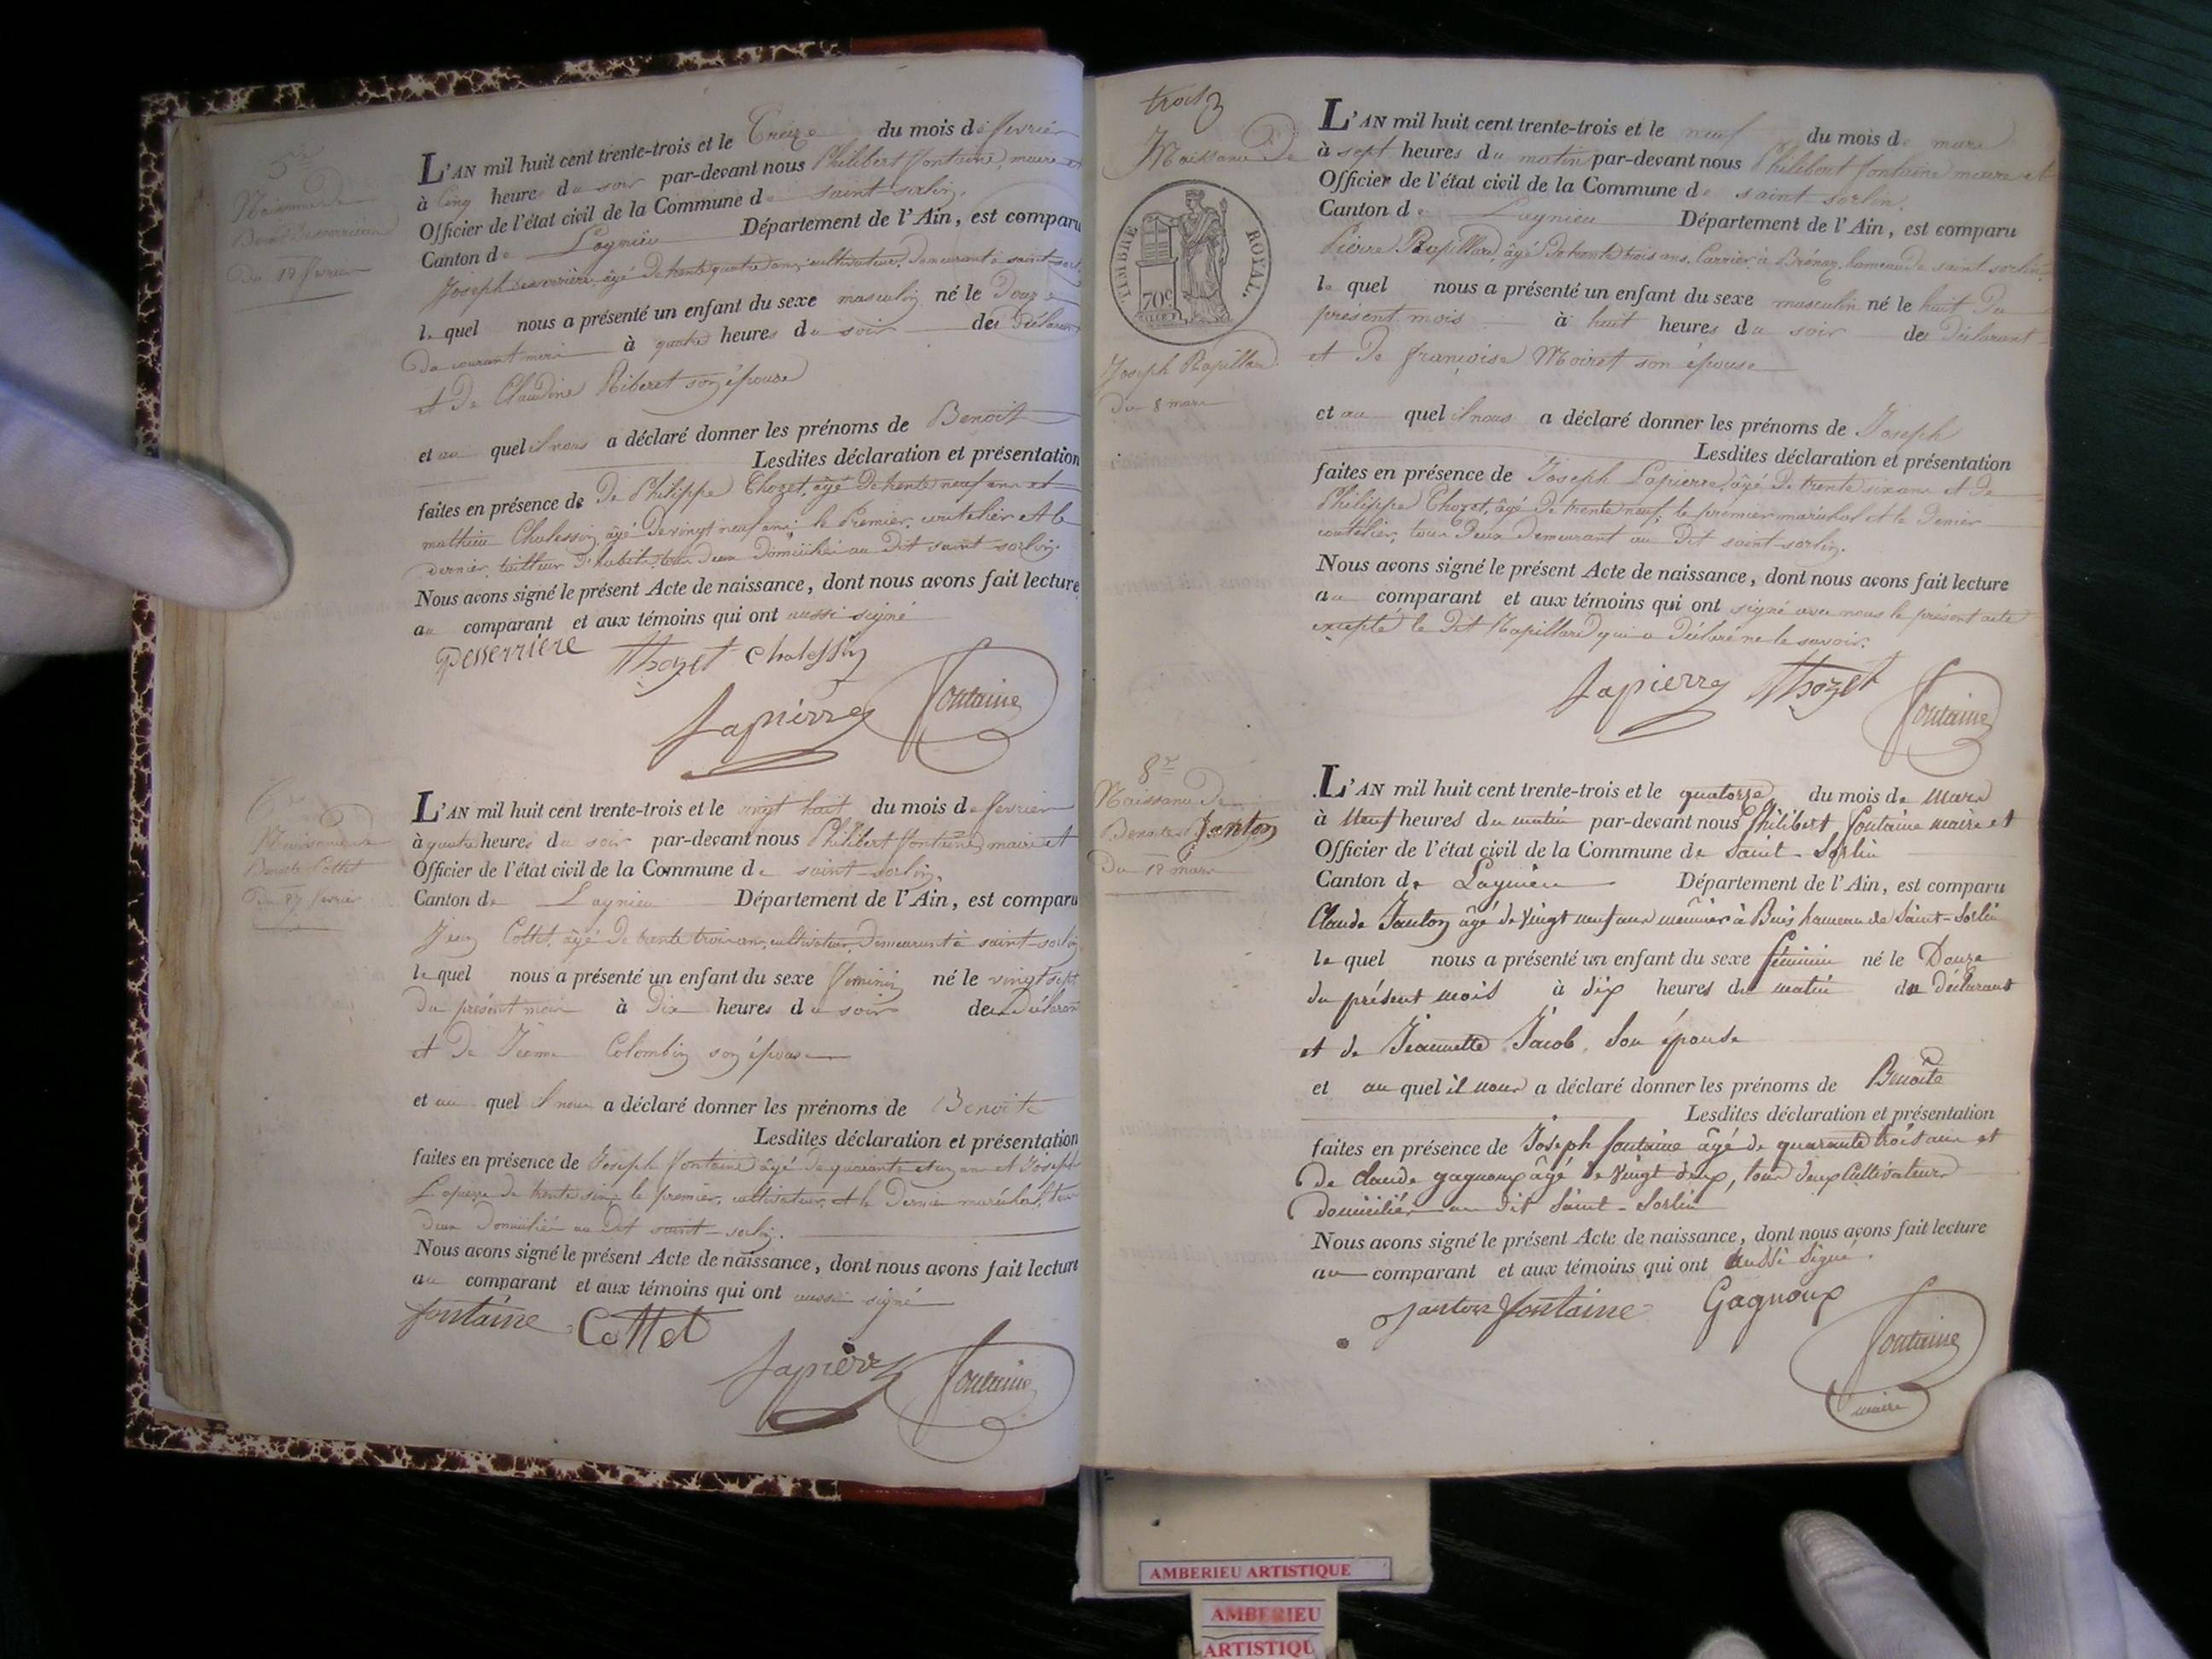 5e
Naissance De
Benoit Desserrière
Du 12 fevrier
L'AN mil huit cent trente-trois et le Treize du mois de fevrier
à Cinq heures du soir par-devant nous Philibert fontaine, maire et
Officier de l'état civil de la Commune de saint-sorlin,
Canton de Lagnieu Département de l'Ain, est comparu
Joseph Desserrière âgé De trente quatre ans, cultivateur, Demeurant à saint-sorl.
le quel nous a présenté un enfant du sexe masculin né le Douze
Du courant mois à quatre heures du soir de Déclarant
et De Claudine Riberet son épouse
et au quel il nous a déclaré donner les prénoms de Benoit
Lesdites déclaration et présentation
faites en présence de De Philippe Thozet, âgé De trente neuf ans et
mathieu Chalessin, âgé De vingt neuf ans; le Premier, coutelier et le
dernier, tailleur D'habits, tous Deux Domiciliés au Dit saint-sorlin.
Nous avons signé le présent Acte de naissance, dont nous avons fait lecture
au comparant et aux témoins qui ont aussi signé
Desserriere Thozet Chalessin
Lapierre fontaine
6e
Naissance de
Benoite Cottet
Du 27 fevrier
L'AN mil huit cent trente-trois et le vingt huit du mois de fevrier
à quatre heures du soir par-devant nous Philibert fontaine, maire et
Officier de l'état civil de la Commune de saint-sorlin,
Canton de Lagnieu Département de l'Ain, est comparu
Jean Cottet, âgé De trente trois ans, cultivateur, Demeurant à saint-sorlin
le quel nous a présenté un enfant du sexe féminin né le vingt sept
Du présent mois à Dix heures du soir de Déclarant
et De Jeanne Colombin son épouse
et au quel il nous a déclaré donner les prénoms de Benoite
Lesdites déclaration et présentation
faites en présence de Joseph fontaine âgé De quarante et un ans et Joseph
Lapierre de trente six; le premier, cultivateur, et le Dernier maréchal, tous
deux Domiciliés au Dit saint-sorlin.
Nous avons signé le présent Acte de naissance, dont nous avons fait lecture
au comparant et aux témoins qui ont aussi signé
fontaine Cottet
Lapierre fontaine
trois 3
Naissance De
TIMBRE ROYAL.
70c
Joseph Rapillard
Du 8 mars
L'AN mil huit cent trente-trois et le neuf du mois de mars
à sept heures du matin par-devant nous Philibert fontaine maire et
Officier de l'état civil de la Commune de saint-sorlin.
Canton de Lagnieu Département de l'Ain, est comparu
Pierre Rapillard, âgé De trente trois ans, Carrier à Brénaz, hameau de saint sorlin
le quel nous a présenté un enfant du sexe masculin né le huit Du
présent mois à huit heures du soir de Déclarant
et De françoise Moiret son épouse
et au quel il nous a déclaré donner les prénoms de Joseph
Lesdites déclaration et présentation
faites en présence de Joseph Lapierre, âgé De trente six ans et De
Philippe Thozet, âgé De trente neuf; le premier maréchal et le Dernier
coutelier, tous Deux Demeurant au Dit saint-sorlin.
Nous avons signé le présent Acte de naissance, dont nous avons fait lecture
au comparant et aux témoins qui ont signé avec nous le présent acte
excepté le Dit Rapillard qui a Déclaré ne le savoir.
Lapierre Thozet
fontaine
8e
Naissance De
Benoite Janton
Du 12 mars
L'AN mil huit cent trente-trois et le quatorze du mois de Mars
à Neuf heures du matin par-devant nous Philibert fontaine maire et
Officier de l'état civil de la Commune de Saint-Sorlin
Canton de Lagnieu Département de l'Ain, est comparu
Claude Janton âgé de Vingt neuf ans meunier à Buis hameau de Saint-Sorlin
le quel nous a présenté un enfant du sexe féminin né le Douze
du présent mois à dix heures du matin du déclarant
et de Jeannette Jacob, Son épouse
et au quel il nous a déclaré donner les prénoms de Benoîte
Lesdites déclaration et présentation
faites en présence de Joseph fontaine âgé de quarante trois ans et
de claude gagnoux âgé de Vingt deux, tous deux Cultivateurs
domiciliés au dit Saint-Sorlin
Nous avons signé le présent Acte de naissance, dont nous avons fait lecture
au comparant et aux témoins qui ont aussi Signé.
janton fontaine Gagnoux
fontaine
maire
AMBERIEU ARTISTIQUE
AMBERIEU
ARTISTIQU